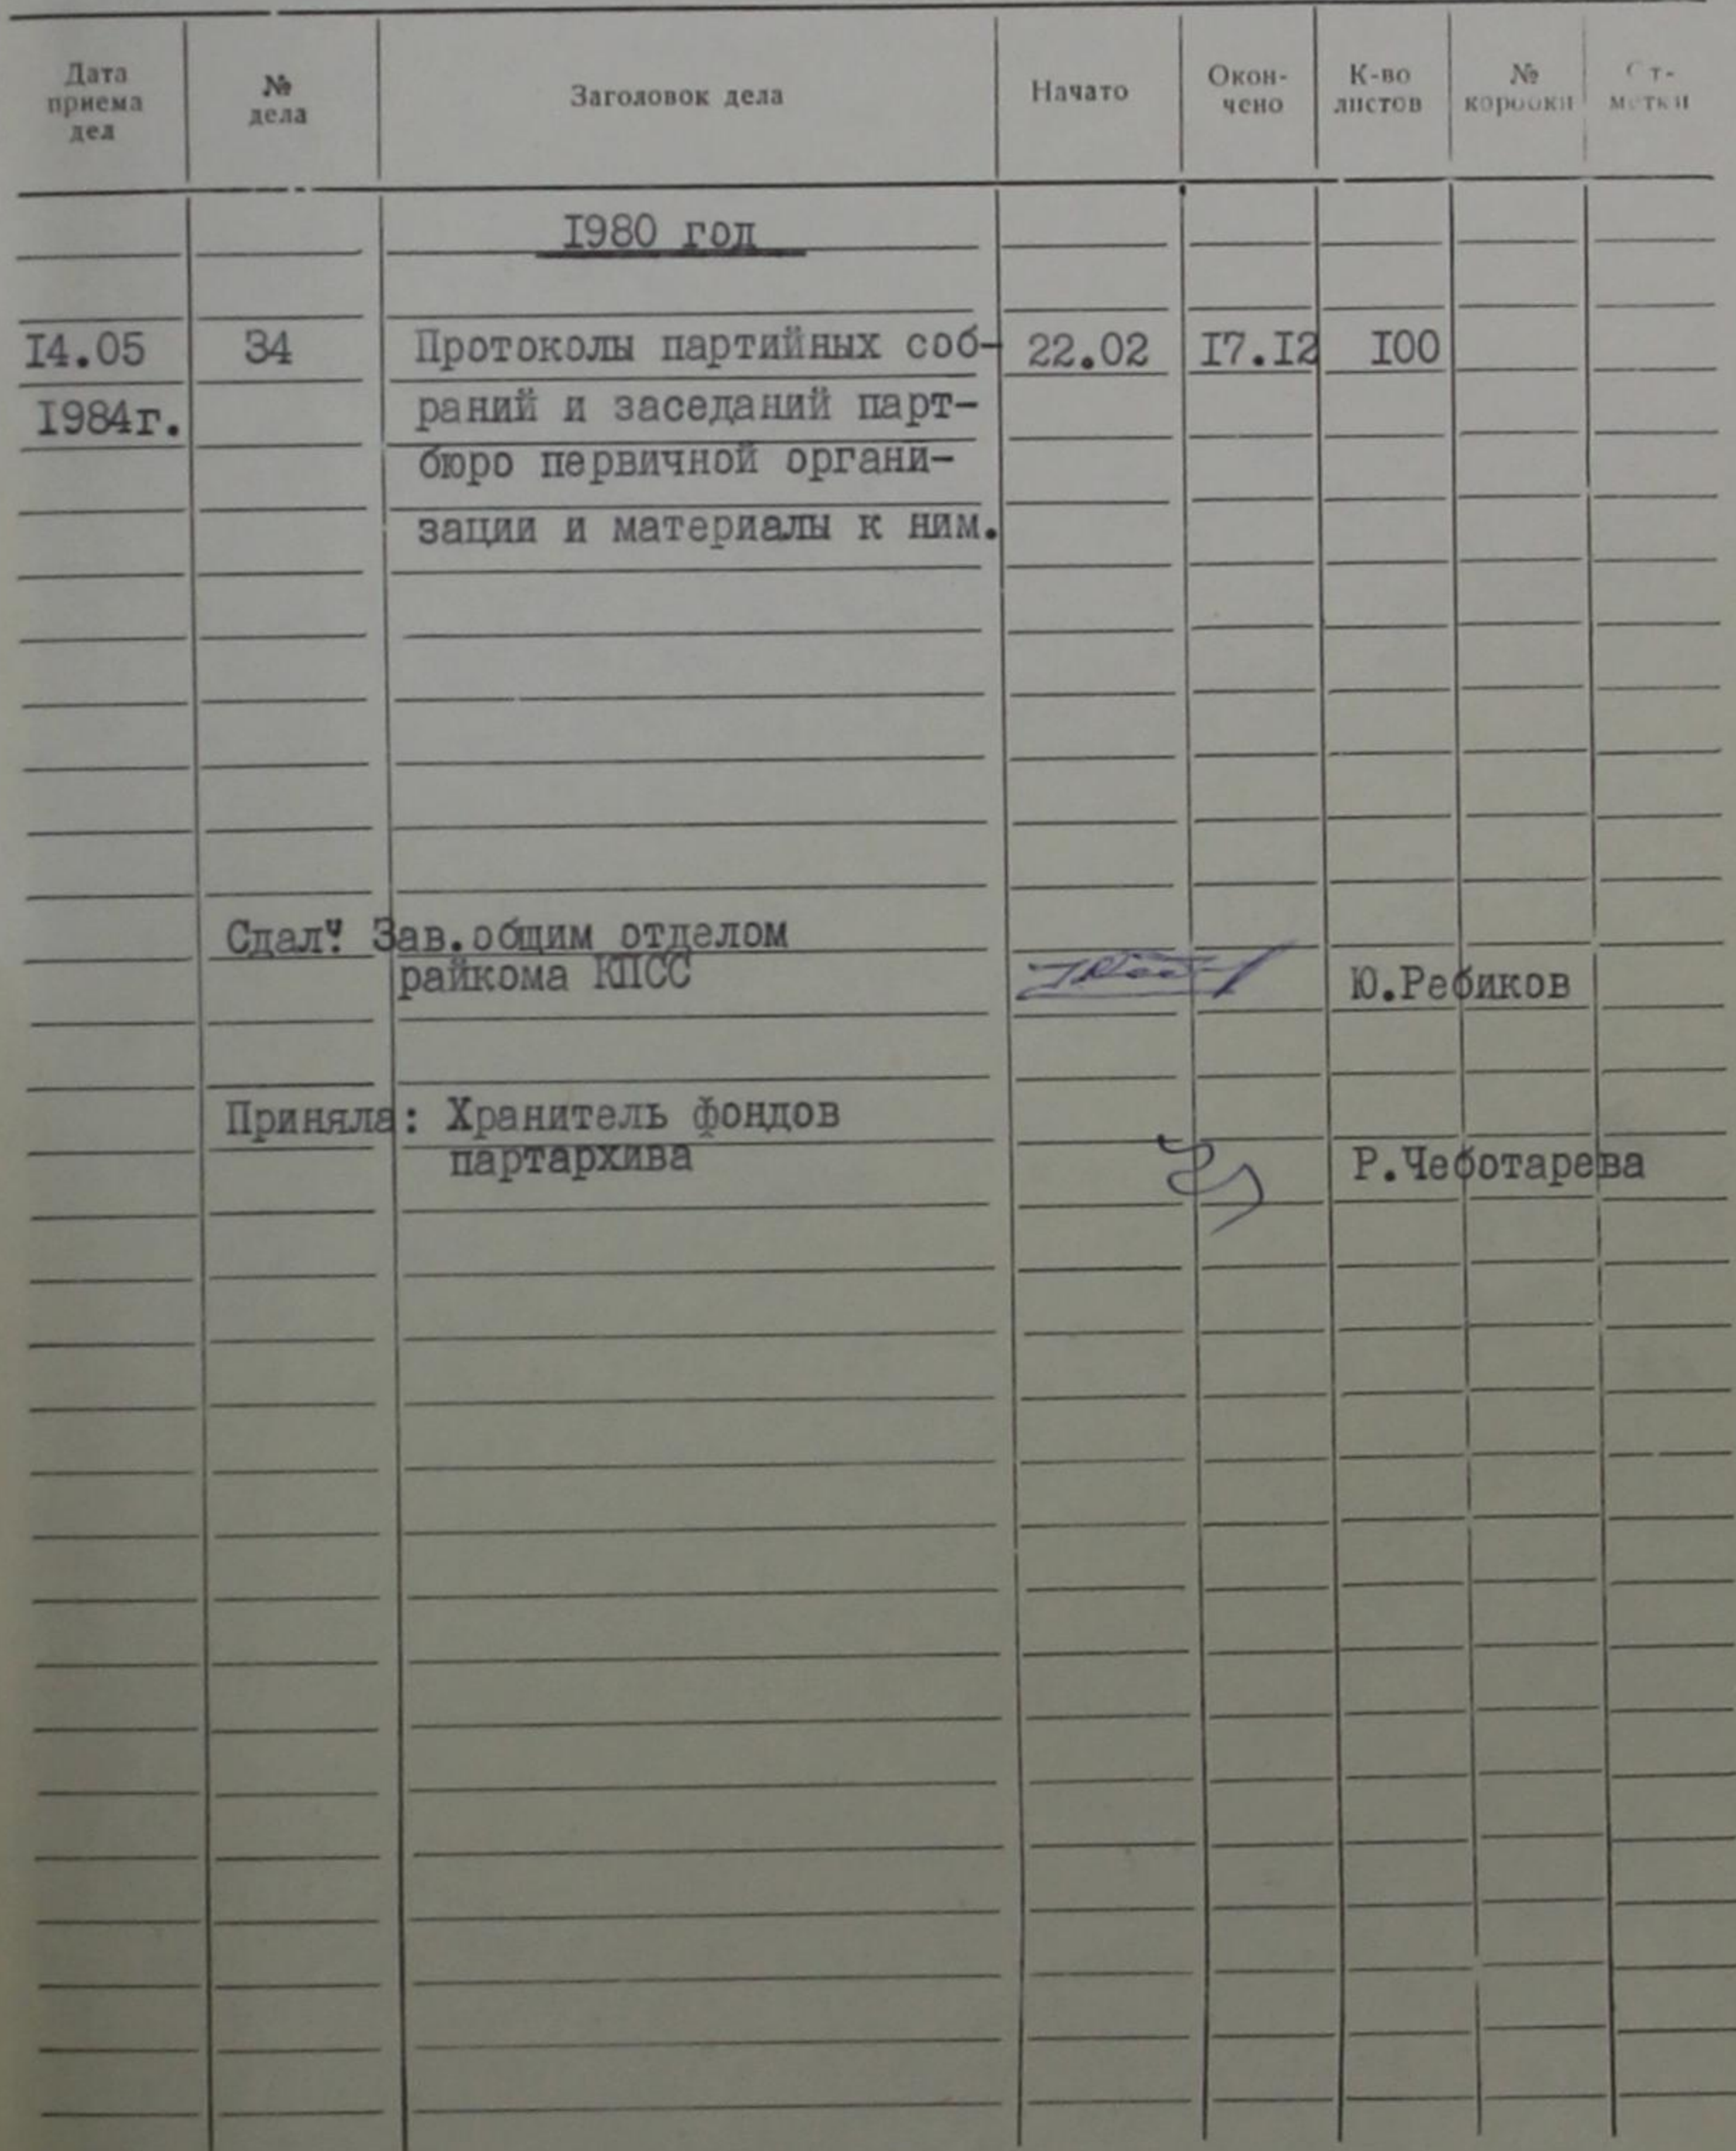 Дата приема дел № дела Заголовок дела Начато Окон- чено К-во листов № коробки От- метки
1980 год
14.05 34 Протоколы партийных соб- 22.02 17.12 100
1984г. раний и заседаний парт-
бюро первичной органи-
зации и материалы к ним.
Сдал: Зав.общим отделом
райкома КПСС Ю.Ребиков
Приняла: Хранитель фондов
партархива Р.Чеботарева